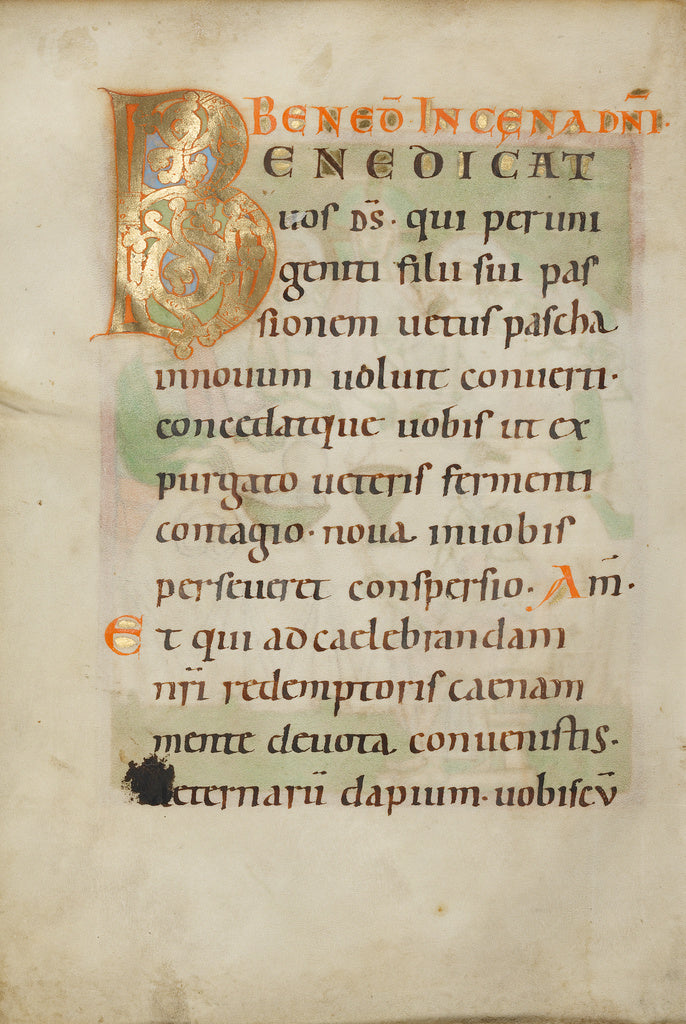 BENED̄ IN CENA DN̄I·
BENEDICAT
uos DS̄· qui per uni
geniti filii sui pas
sionem uetus pascha
innouum uoluit conuerti·
concedatque uobis ut ex
purgato ueteris fermenti
contagio· noua inuobis
perseueret conspersio· Am̄·
Et qui ad caelebrandam
nr̄i redemptoris caenam
mente deuota conuenistis·
aeternarū dapium· uobiscū